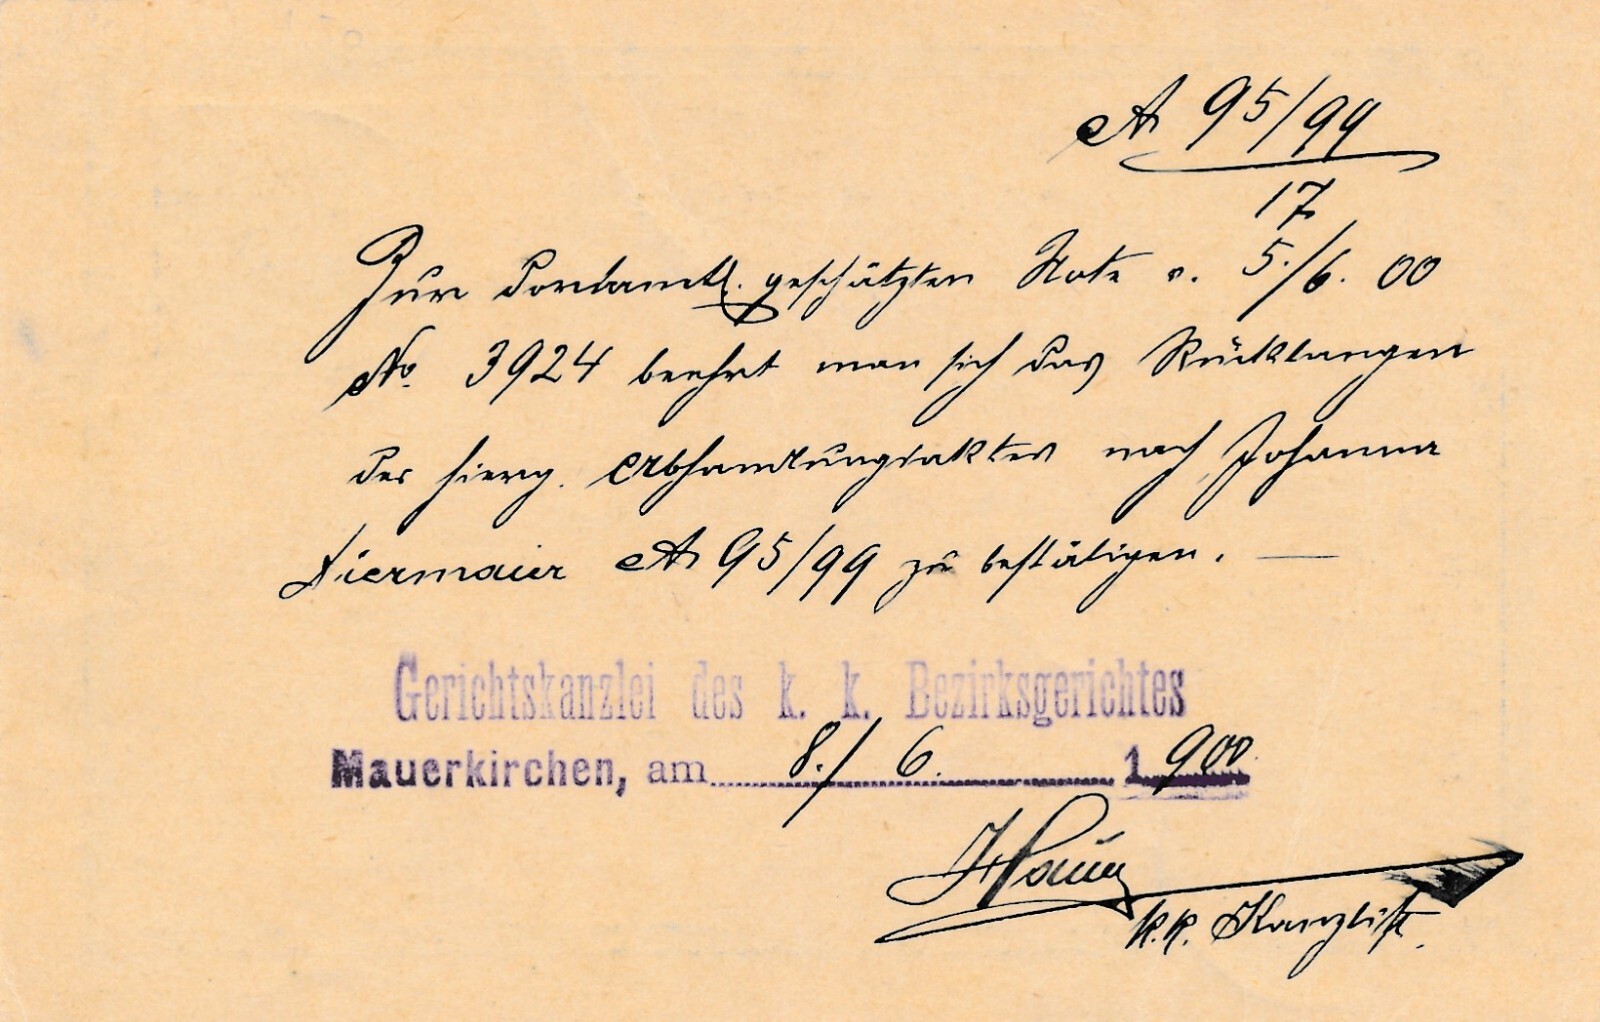 A 95/99
17
Zur dortamtl. geschätzten Note v. 5./6. 00
No. 3924 beehrt man sich das Rücklangen
des hierg. Erbhandlungsaktes nach Johanna
Diermaier A 95/99 zu bestätigen. —
Gerichtskanzlei des k. k. Bezirksgerichtes
Mauerkirchen, am 8./ 6. 1900
k.k. Kanzlist.